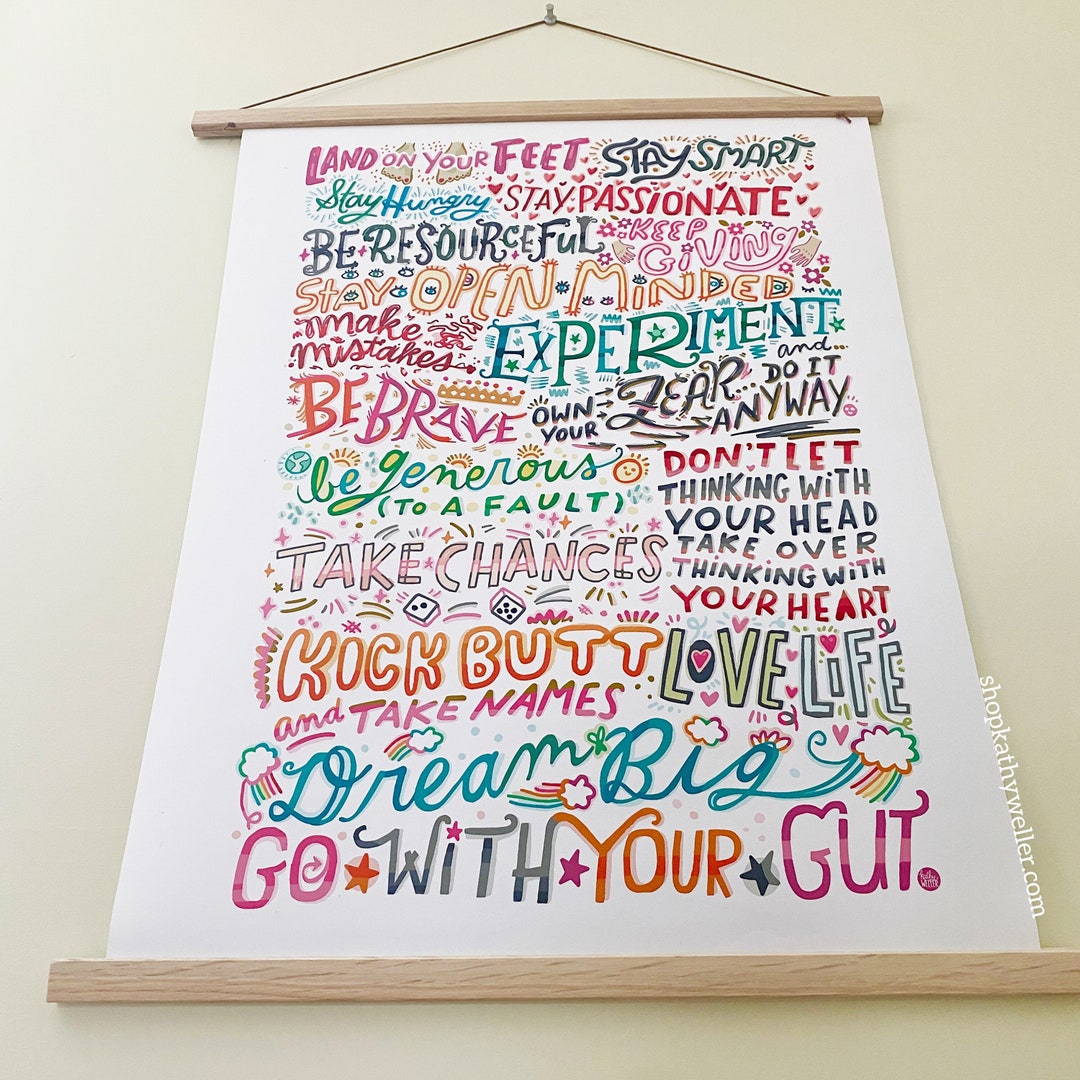 LAND ON YOUR FEET
STAY SMART
Stay Hungry
STAY PASSIONATE
BE RESOURCEFUL
KEEP
GIVING
STAY OPEN MINDED
make
mistakes
EXPERIMENT
BE BRAVE
OWN
YOUR
FEAR...
and...
DO IT
ANYWAY
be generous
(TO A FAULT)
DON'T LET
THINKING WITH
YOUR HEAD
TAKE OVER
THINKING WITH
YOUR HEART
TAKE CHANCES
KICK BUTT
and TAKE NAMES
LOVE LIFE
Dream Big
GO WITH YOUR GUT
Kathy
WELLER
shopkathyweller.com